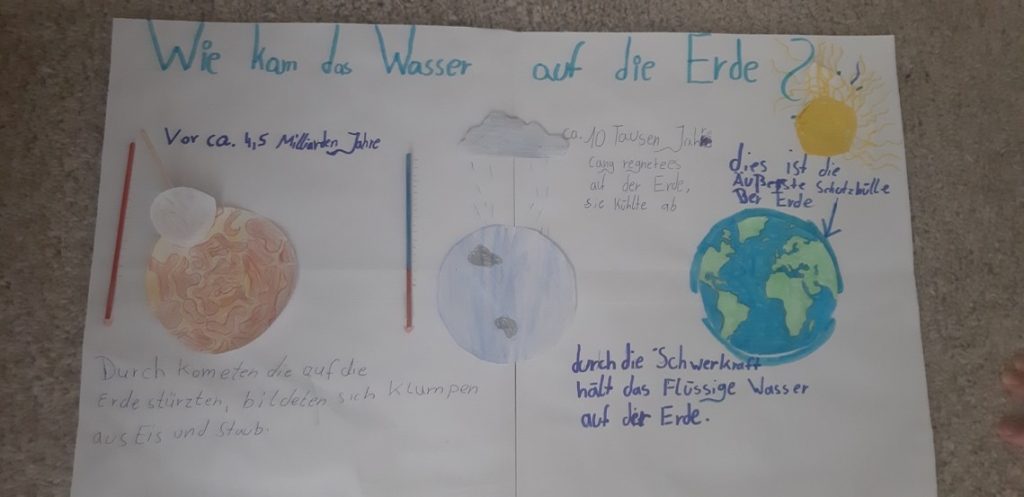 Wie kam das Wasser auf die Erde?
Vor ca. 4,5 Milliarden Jahre
ca. 10 Tausen Jahre
lang regnete es
auf der Erde,
sie kühlte ab
dies ist die
Äußerste Schutzhülle
Der Erde
Durch kometen die auf die
Erde stürzten, bildeten sich Klumpen
aus Eis und Staub.
durch die Schwerkraft
hält das Flüssige Wasser
auf der Erde.